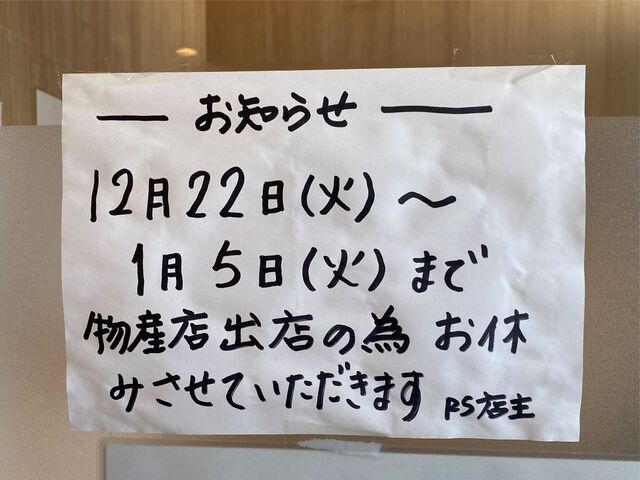 — お知らせ —
12月22日(火)～
1月5日(火)まで
物産店出店の為 お休
みさせていただきます RS店主